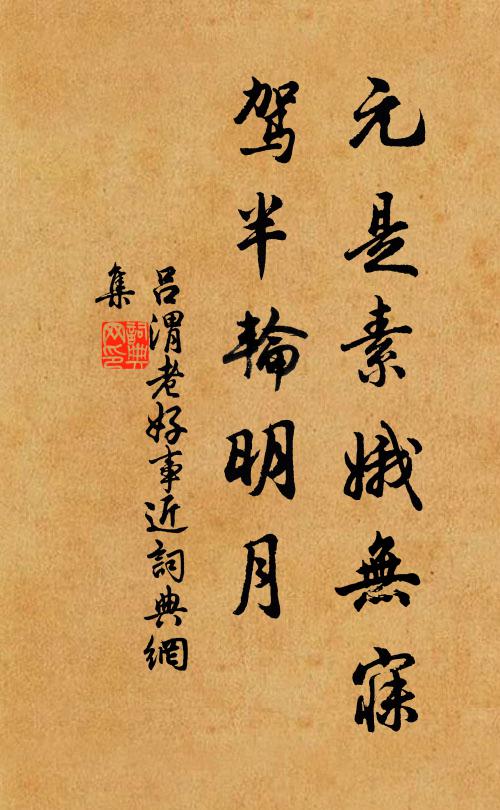 元是素娥無寐
駕半輪明月
吕渭老好事近詞典網
集
詞典
网印